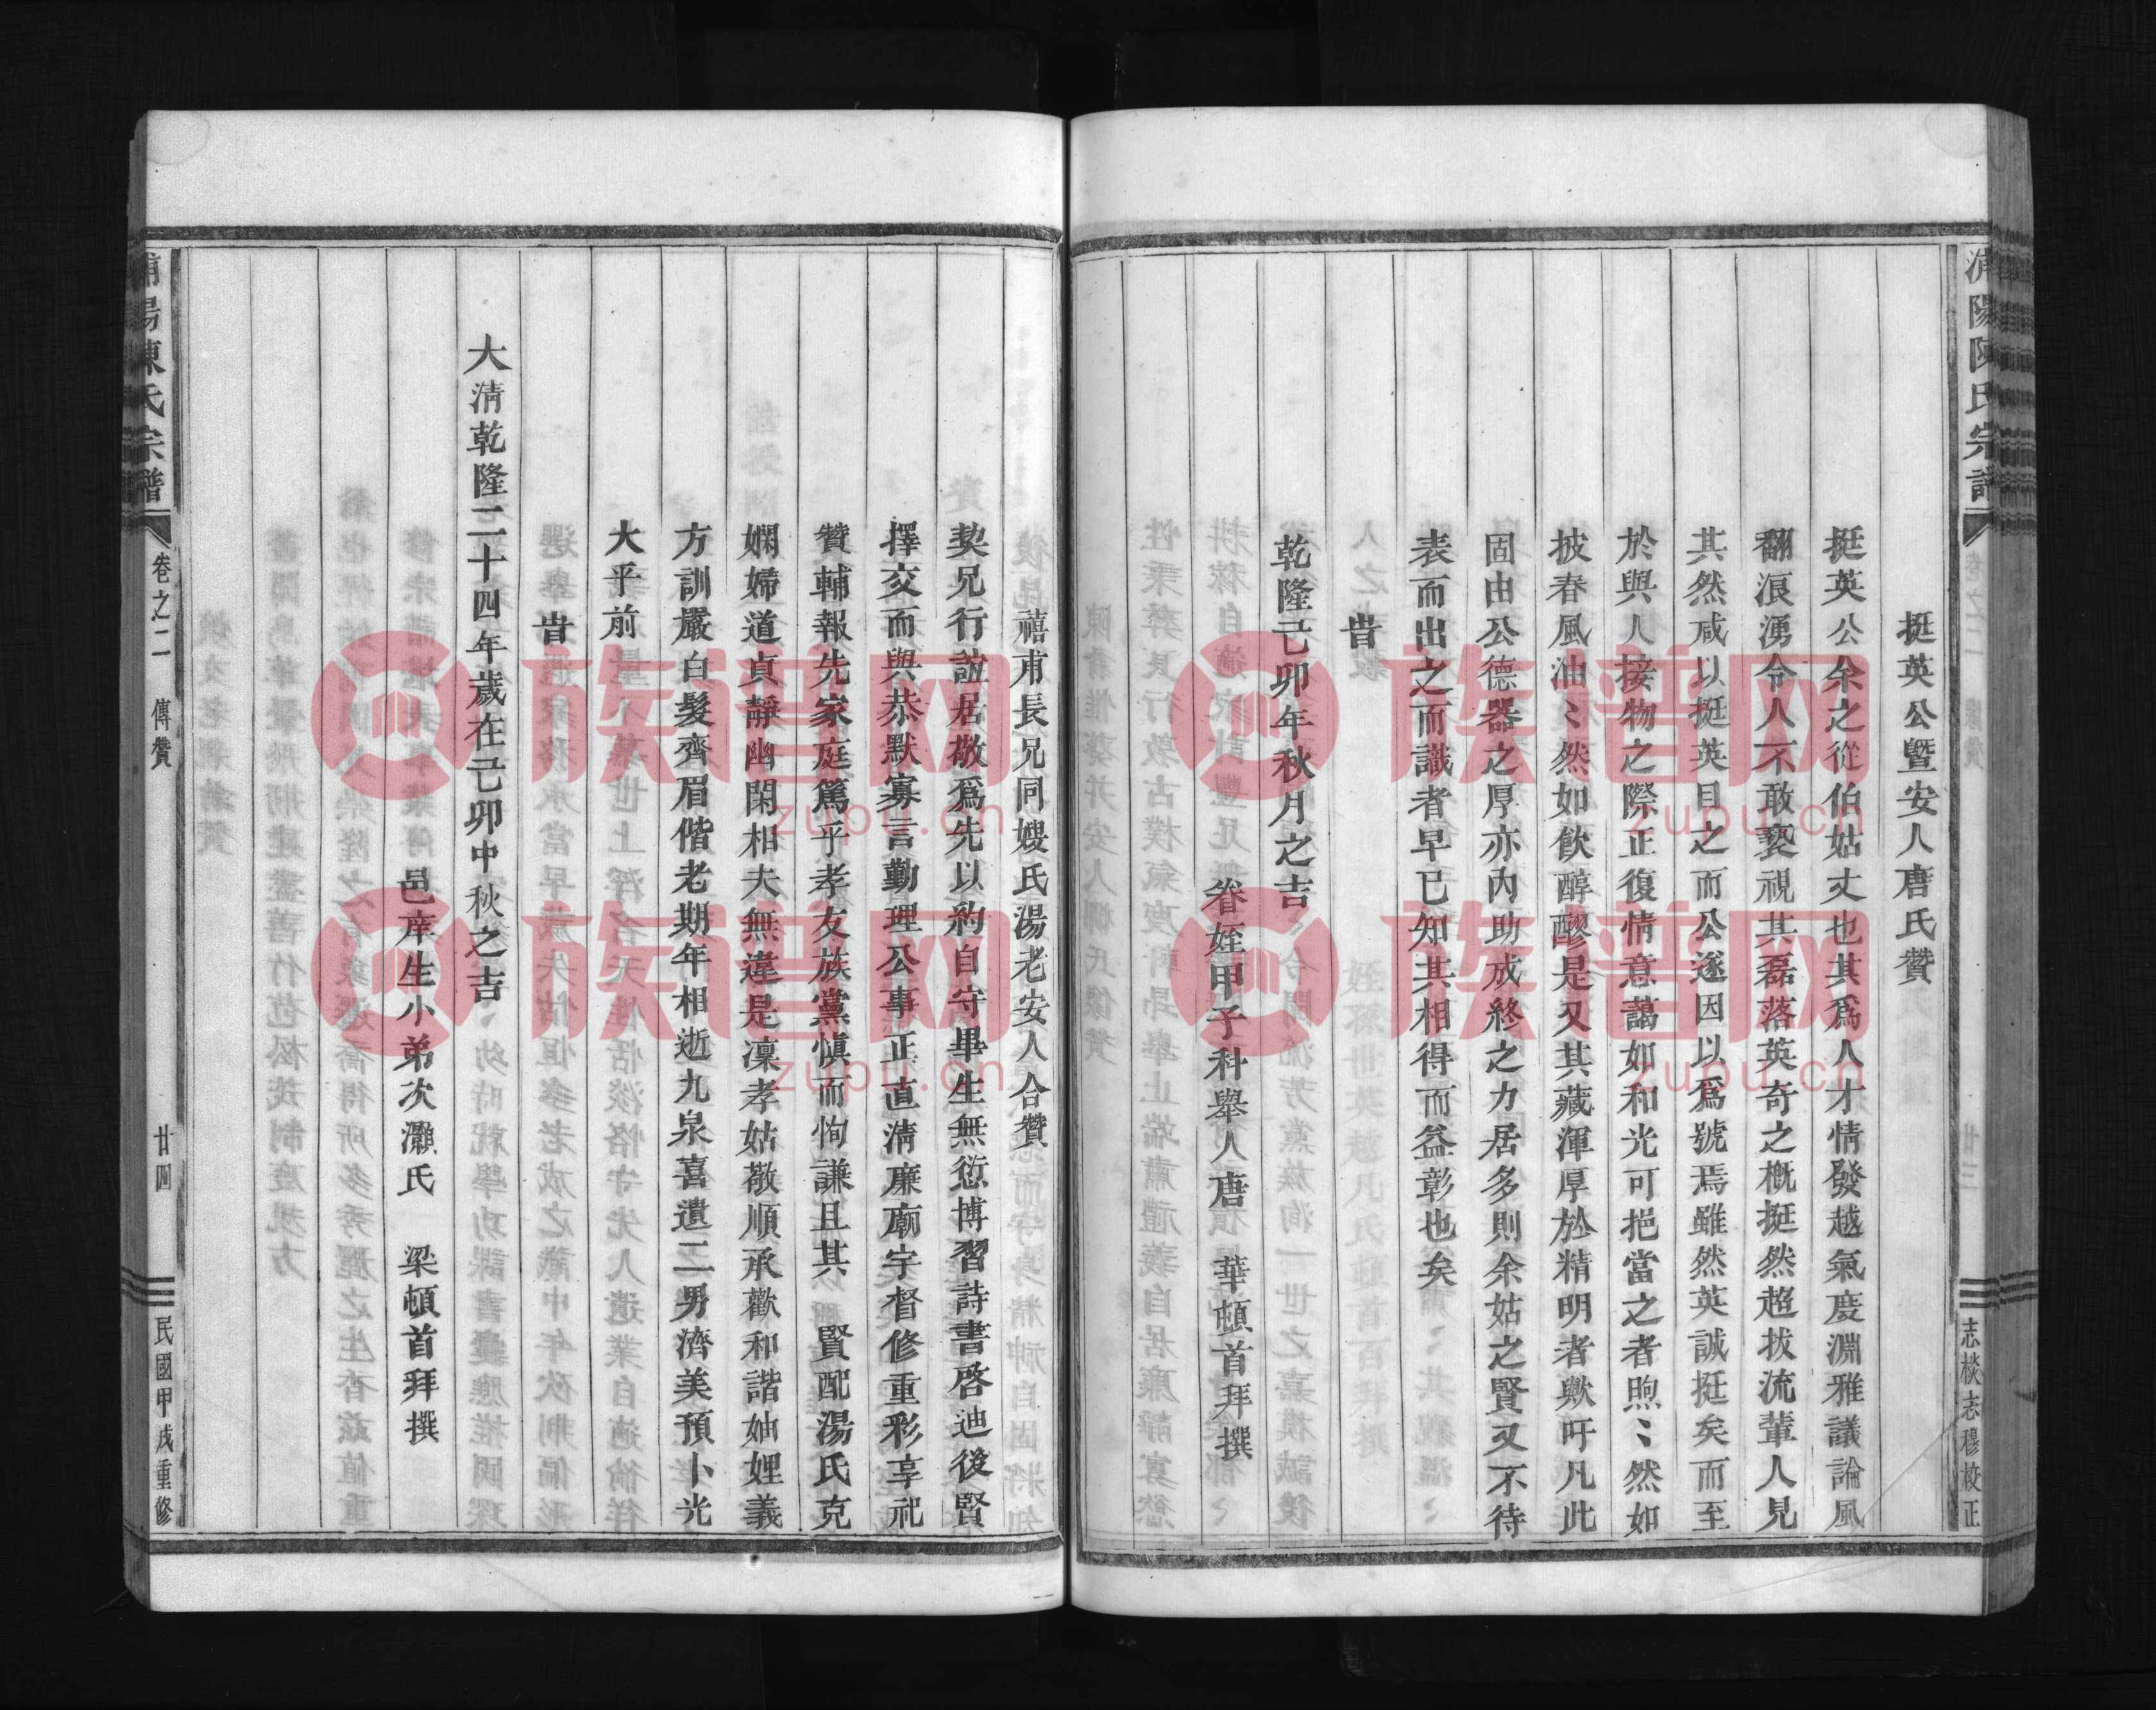 浦陽陳氏宗譜
志棪志穆校正
挺英公曁安人唐氏贊
挺英公余之從伯姑丈也其爲人才情發越氣度淵雅議論風
翻浪湧令人不敢褻視其磊落英奇之槪挺然超拔流輩人見
其然咸以挺英目之而公遂因以爲號焉雖然英誠挺矣而至
於與人接物之際正復情意藹如和光可挹當之者煦〻然如
披春風油〻然如飮醇醪是又其藏渾厚於精明者歟吁凡此
固由公德器之厚亦內助成終之力居多則余姑之賢又不待
表而出之而識者早已知其相得而益彰也矣
旹
乾隆己卯年秋月之吉
眷姪甲子科舉人唐 華頓首拜撰
禧甫長兄同嫂氏湯老安人合贊
契兄行誼居敬爲先以約自守畢生無愆博習詩書啓迪後賢
擇交而與恭默寡言勤理公事正直淸廉廟宇督修重彩享祀
贊輔報先家庭篤乎孝友族黨愼而恂謙且其 賢配湯氏克
嫻婦道貞靜幽閑相夫無違是凜孝姑敬順承歡和諧妯娌義
方訓嚴白髮齊眉偕老期年相逝九泉喜遺二男濟美預卜光
大乎前
旹
大淸乾隆二十四年歲在己卯中秋之吉
邑庠生小弟次灝氏 梁頓首拜撰
浦陽陳氏宗譜
卷之二 傳贊
廿四
民國甲戌重修
族谱网
zupu.cn
族谱网
zupu.cn
族谱网
zupu.cn
族谱网
zupu.cn